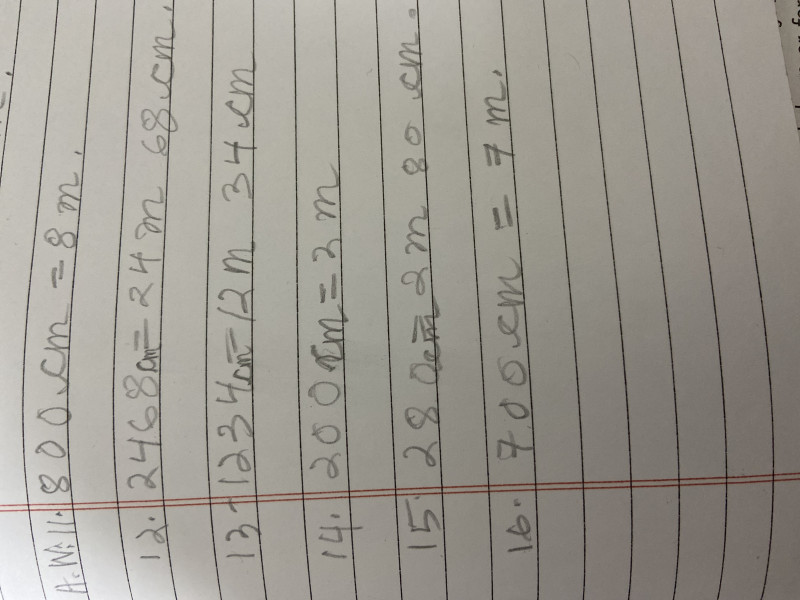 A.W. 11. 800 cm = 8 m.
12. 2468 cm = 24 m 68 cm.
13. 1234 cm = 12 m 34 cm
14. 200 cm = 2 m
15. 280 cm = 2 m 80 cm.
16. 700 cm = 7 m.